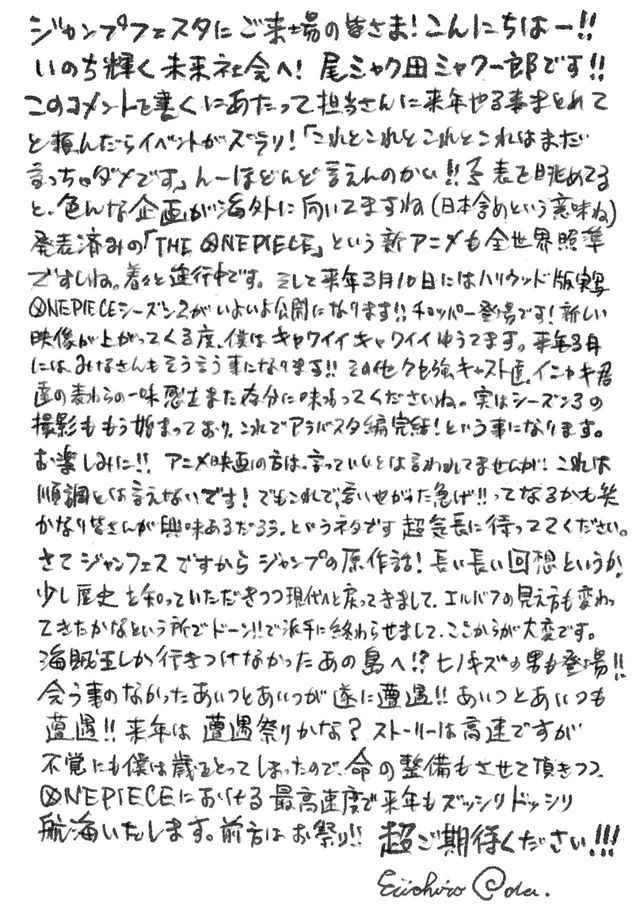 ジャンプフェスタにご来場の皆さま!こんにちはー!!
いのち輝く未来社会へ! 尾ミャク田ミャク一郎です!!
このコメントを書くにあたって担当さんに来年やる事まとめて
と頼んだらイベントがズラリ!「これとこれとこれとこれはまだ
言っちゃダメです」んーほどんど言えんのかい!!予表を眺めてる
と、色んな企画が海外に向いてますね(日本含めという意味ね)
発表済みの「THE ONE PIECE」という新アニメも全世界照準
ですしね。着々と進行中です。そして来年3月10日にはハリウッド版実写
ONE PIECEシーズン2がいよいよ公開になります!!チョッパー登場です!新しい
映像が上がってくる度、僕はキャワイイキャワイイゆうてます。来年3月
には、みなさんもそう言う事になります!! その他クセ強キャスト達、イニャキ君
達の麦わらの一味感もまた存分に味わってくださいね。実はシーズン3の
撮影ももう始まっており、これでアラバスタ編完結!という事になります。
お楽しみに!! アニメ映画の方は、言っていいとは言われてませんが、これは
順調とは言えないです!でもこれで、言いやがった急げ!!ってなるかも笑
かなり皆さんが興味あるだろう、というネタです 超気長に待っててください。
さてジャンフェスですからジャンプの原作話!長い長い回想というか、
少し歴史を知っていただきつつ現代へと戻ってきまして、エルバフの見え方も変わっ
てきたかなという所でドーン!!で派手に終わらせまして、ここからが大変です。
海賊王しか行きつけなかったあの島へ!?ヒノキズの男も登場!!
会う事のなかったあいつとあいつが遂に遭遇!! あいつとあいつも
遭遇!! 来年は遭遇祭りかな? ストーリーは高速ですが
不覚にも僕は歳をとってしまったので、命の整備もさせて頂きつつ、
ONE PIECEにおける最高速度で来年もズッシリドッシリ
航海いたします。前方はお祭り!! 超ご期待ください!!!
Eiichiro Oda.